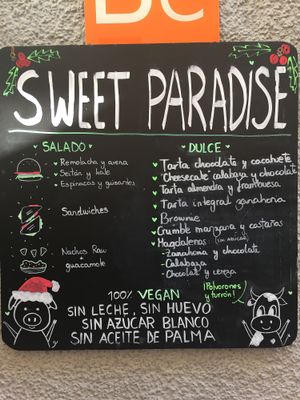 BC
SWEET PARADISE
SALADO
Remolacha y avena
Seitán y kale
Espinacas y guisantes
Sandwiches
Nachos Raw
guacamole
DULCE
Tarta chocolate y cacahuete
"Cheesecake" calabaza y chocolate
Tarta almendra y frambuesa
Tarta integral zanahoria
Brownie
Crumble manzana y castañas
Magdalenas (SIN AZÚCAR)
- Zanahoria y chocolate
- Calabaza
- Chocolate y cereza
¡Polvorones
y turrón!
100% VEGAN
SIN LECHE, SIN HUEVO
SIN AZÚCAR BLANCO
SIN ACEITE DE PALMA